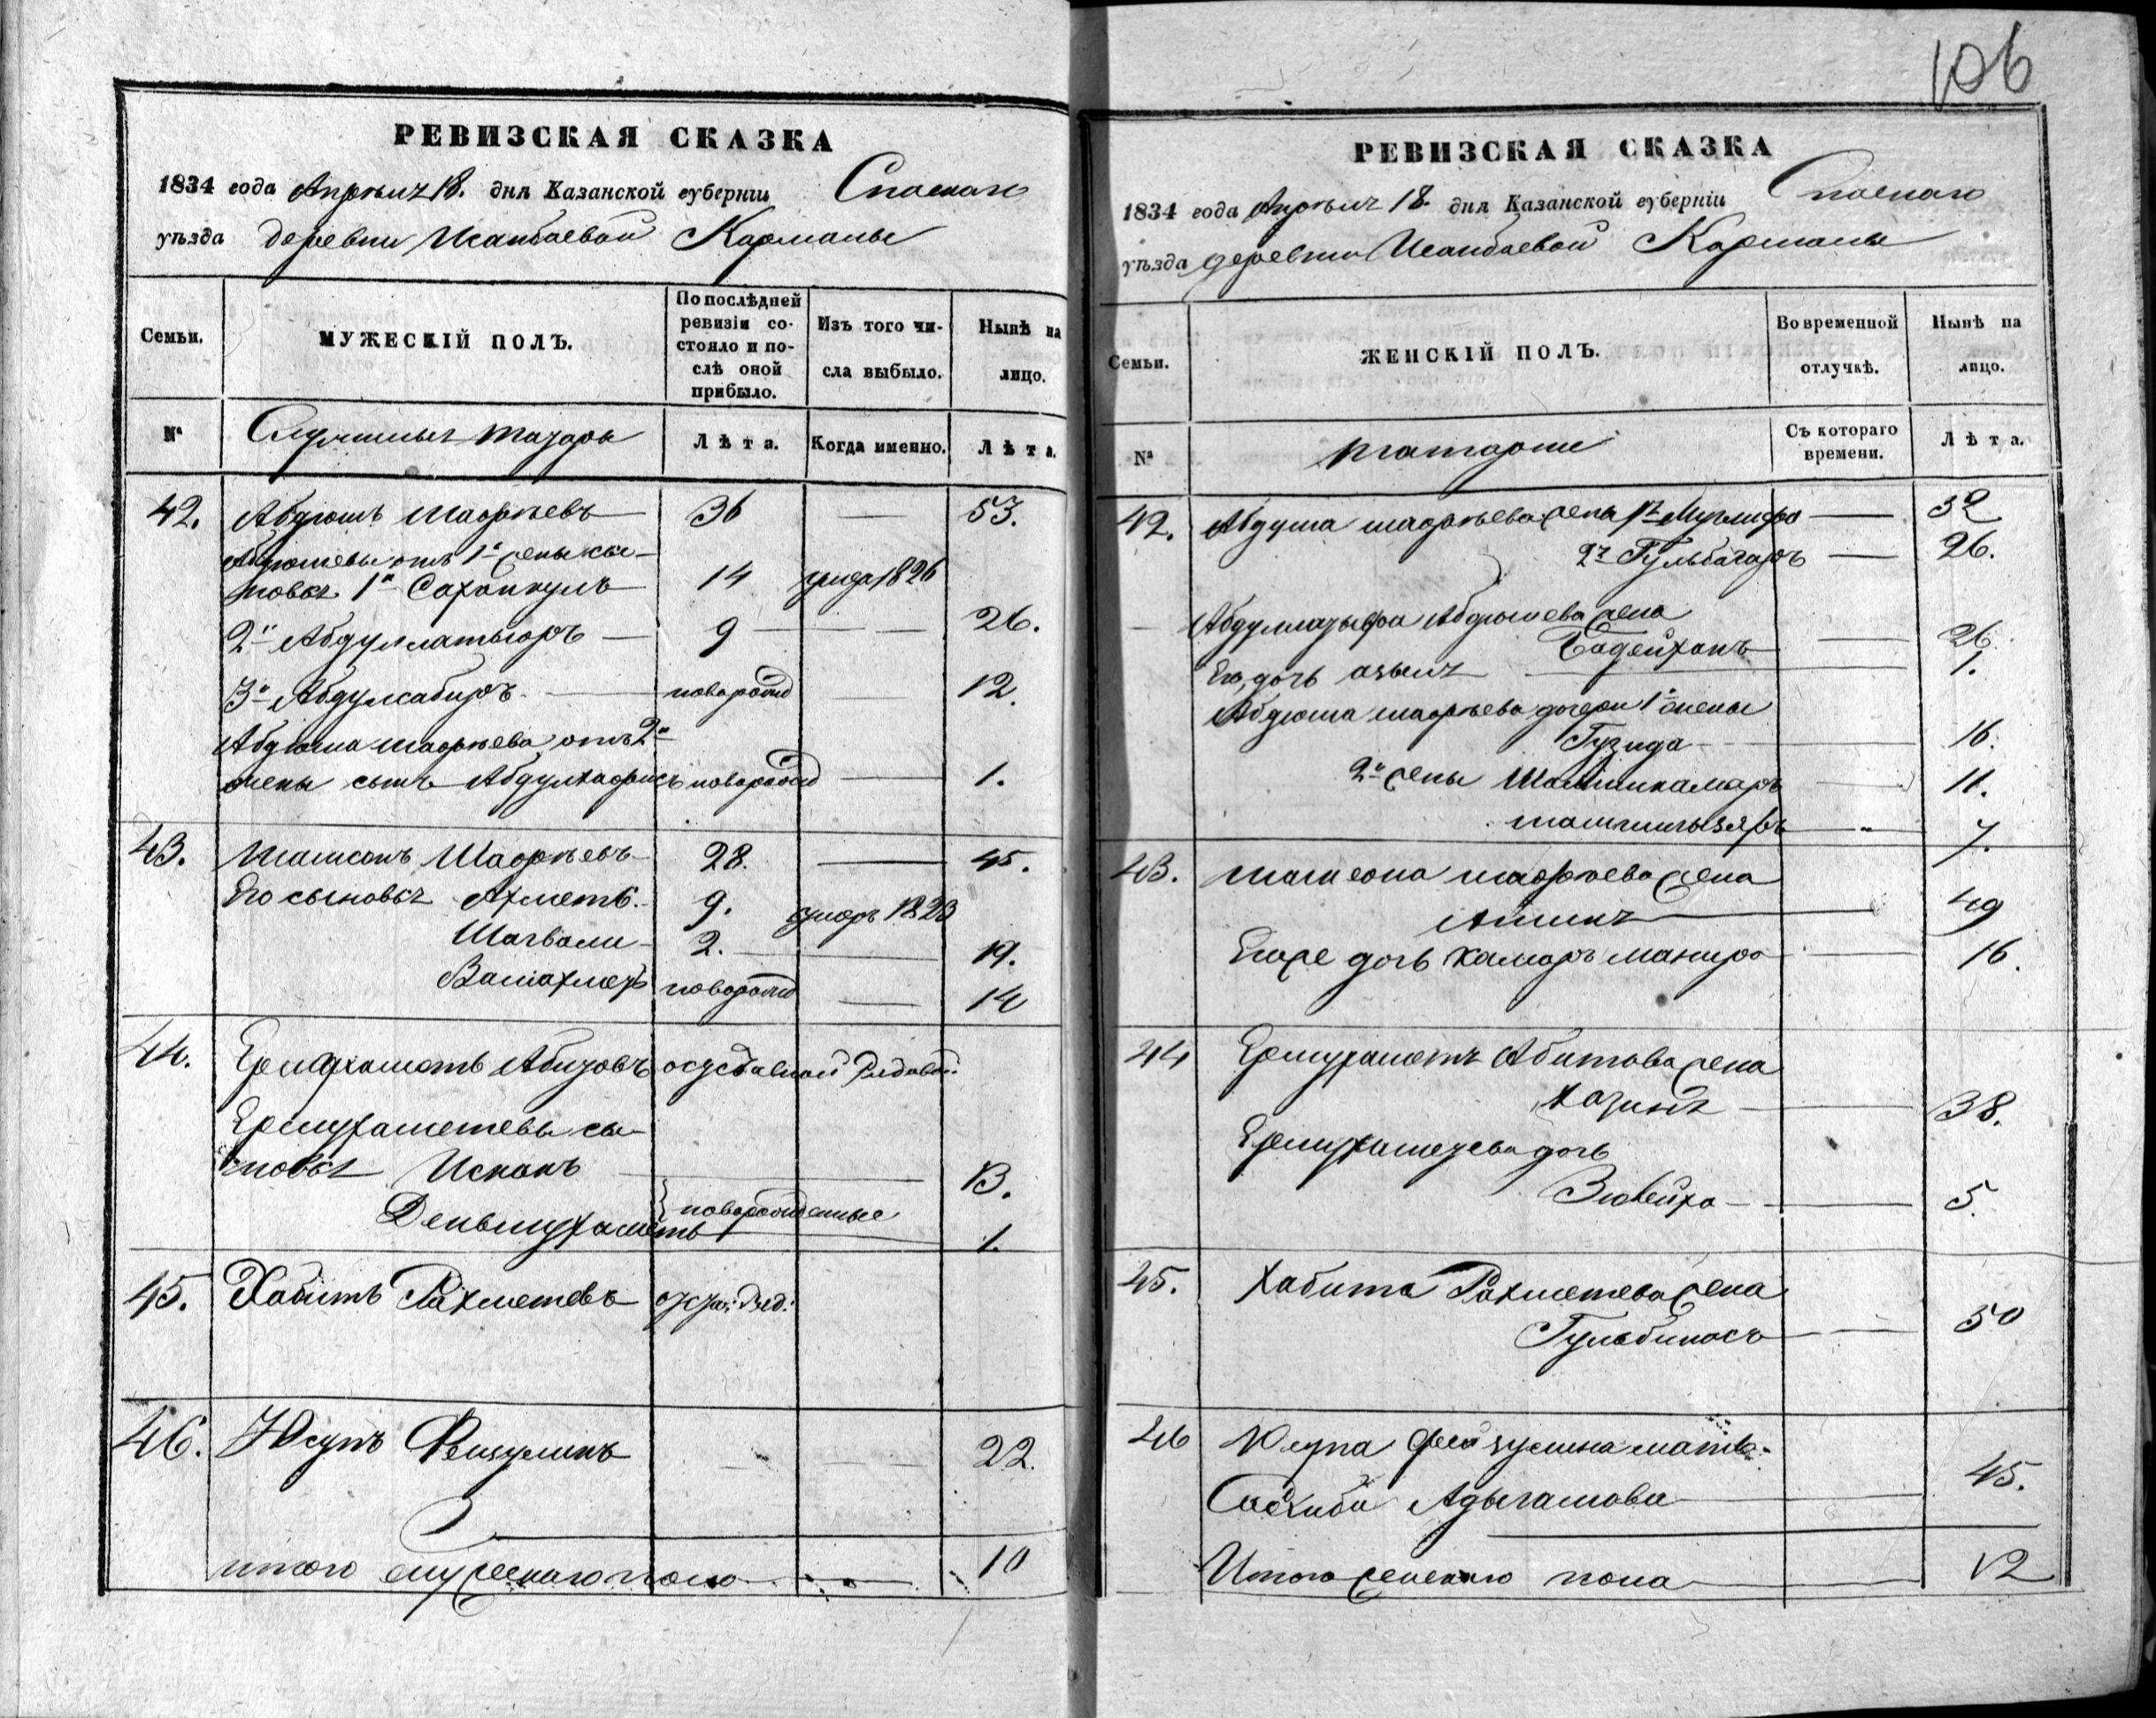 РЕВИЗСКАЯ СКАЗКА
1834 года Апрѣля 18. дня Казанской губерніи Спаскаго
уѣзда деревни Исанбаевой Кармалы
Семьи.
МУЖЕСКІЙ ПОЛЪ.
По послѣдней ревизіи состояло и послѣ оной прибыло.
Изъ того числа выбыло.
Нынѣ на лицо.
№
Служилыхъ татаръ
Лѣта.
Когда именно.
Лѣта.
42. Абдюшъ Шафѣевъ 36 53.
Абдюшевы отъ 1й жены сы-
новья 1й 14 умеръ 1826
2й Абдуллатыфъ 9 26.
3й Абдулкабиръ новорожд 12.
Абдюша Шафѣева отъ 2й
жены сынъ новорожд 1.
43. Шафѣевъ 28. 45.
Его сыновья Ахметь. 9. умеръ 1823
Шагвали 2. 19.
Валіахметь новорожд 14
44. Ермухаметь Абитовъ отставной Рядовой
Ермухаметевы сы-
новья Исхакъ 13.
новорожденные
Деньмухаметь 1.
45. Хабитъ Рахметевъ отстав: Ряд:
46. Юсупъ Фейзулинъ 22.
итого мужескаго пола 10
106
РЕВИЗСКАЯ СКАЗКА
1834 года Апрѣля 18. дня Казанской губерніи Спаскаго
уѣзда деревни Исанбаевой Кармалы
Семьи.
ЖЕНСКІЙ ПОЛЪ.
Во временной отлучкѣ.
Нынѣ на лицо.
№
татарки
Съ котораго времени.
Лѣта.
42. Абдюша Шафѣева жена 1я 32
2я Гульбагаръ 26.
Абдуллатыфа Абдюшева жена
Бадейханъ 26.
Его дочь 1.
Абдюша Шафѣева дочери 1й жены
Гузида 16.
2й жены Шамсикамаръ 11.
7.
43. Шафѣева жена
49
Ея же дочь Камаръ 16.
44 Ермухаметя Абитова жена
38.
Ермухаметева дочь
Зювейха 5.
45. Хабита Рахметева жена
Гульбиназъ 50
46 Юсупа Фейзулина мать
Адыгамова 45.
Итого женскаго пола 12